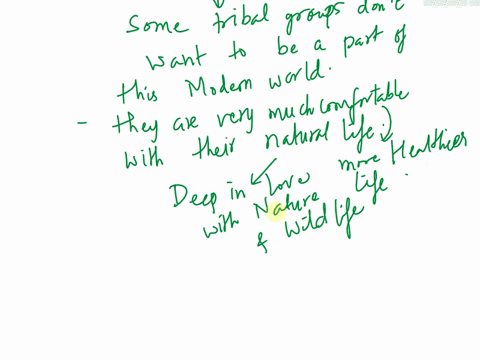 Some tribal groups don't
want to be a part of
this Modern world.
- they are very much comfortable
with their natural life.)
Deep in Love
with Nature
& Wildlife
more Healthier
life.